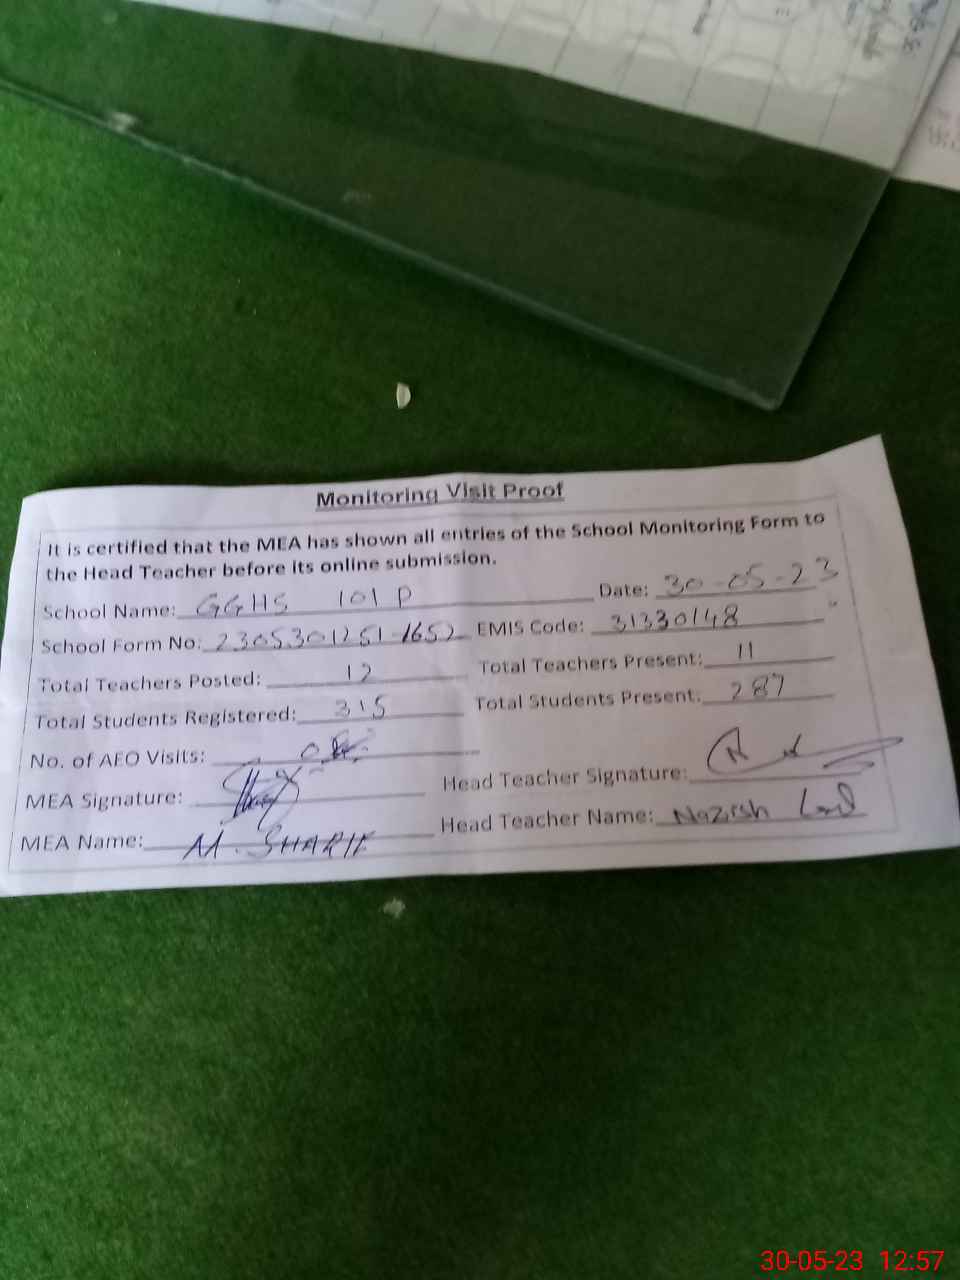 Monitoring Visit Proof
It is certified that the MEA has shown all entries of the School Monitoring Form to
the Head Teacher before its online submission.
School Name: GGHS 101 P Date: 30-05-23
School Form No: 2305301251-1652 EMIS Code: 31330148
Total Teachers Posted: 12 Total Teachers Present: 11
Total Students Registered: 315 Total Students Present: 287
No. of AEO Visits:
MEA Signature: Head Teacher Signature:
MEA Name: M. SHARIF Head Teacher Name: Nazish
30-05-23 12:57